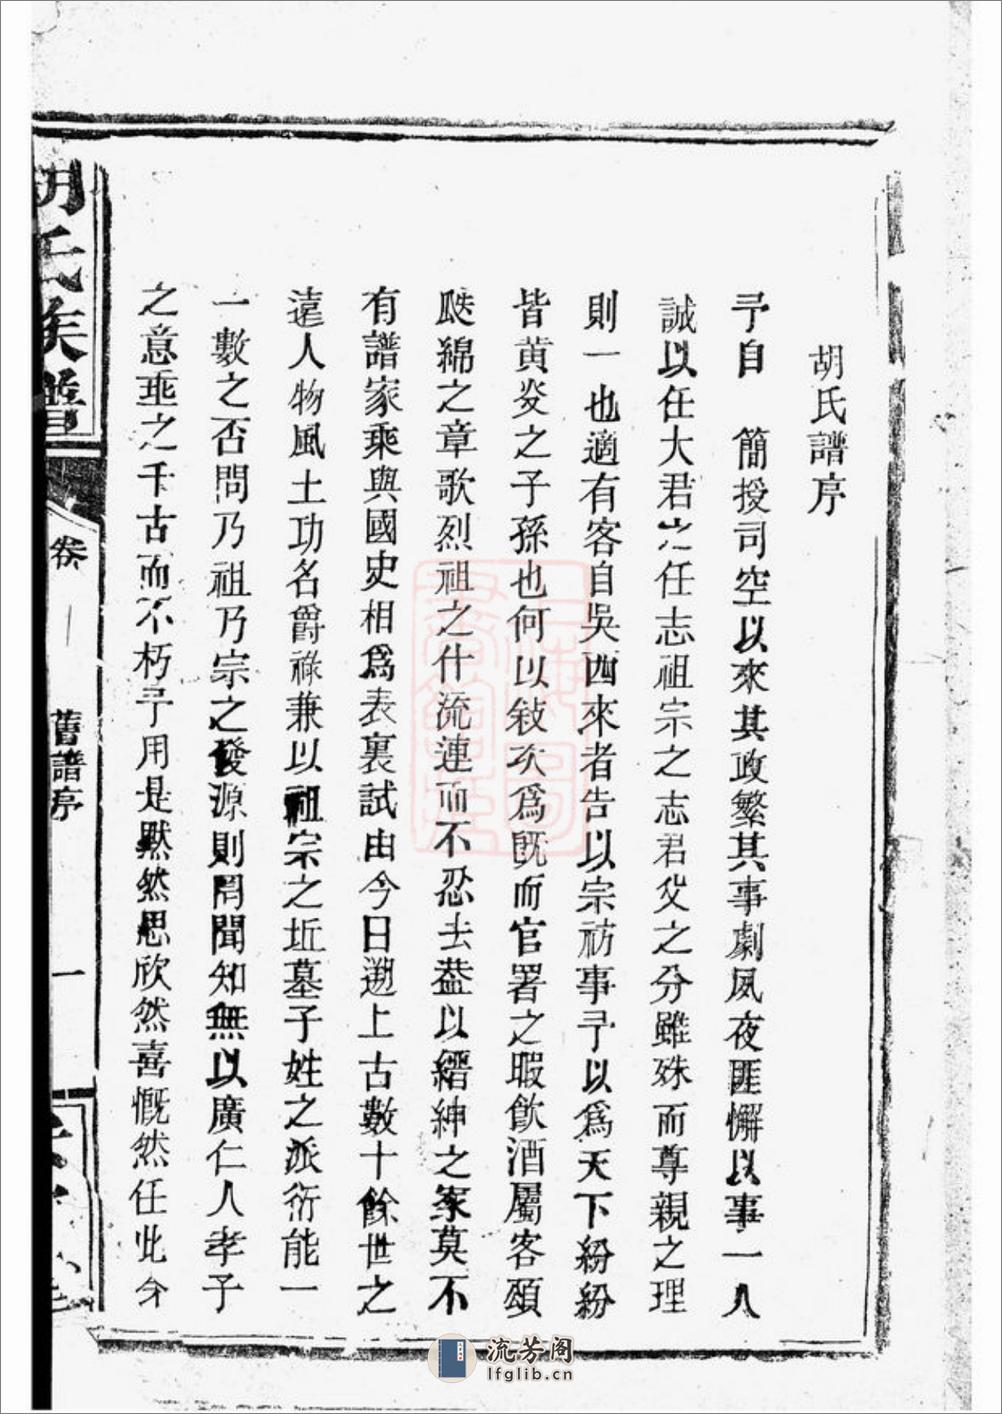 胡氏譜序
予自 簡授司空以來其政繁其事劇夙夜匪懈以事一人
誠以任大君之任志祖宗之志君父之分雖殊而尊親之理
則一也適有客自吳西來者告以宗祊事予以爲天下紛紛
皆黄炎之子孫也何以敍次爲既而官署之暇飮酒屬客頌
瓞綿之章歌烈祖之什流連而不忍去葢以縉紳之家莫不
有譜家乘與國史相爲表裏試由今日遡上古數十餘世之
遠人物風土功名爵祿兼以祖宗之坵墓子姓之派衍能一
一數之否問乃祖乃宗之發源則罔聞知無以廣仁人孝子
之意垂之千古而不朽予用是默然思欣然喜慨然任此今
胡氏族譜
卷
一
舊譜序
一
流芳阁
lfglib.cn